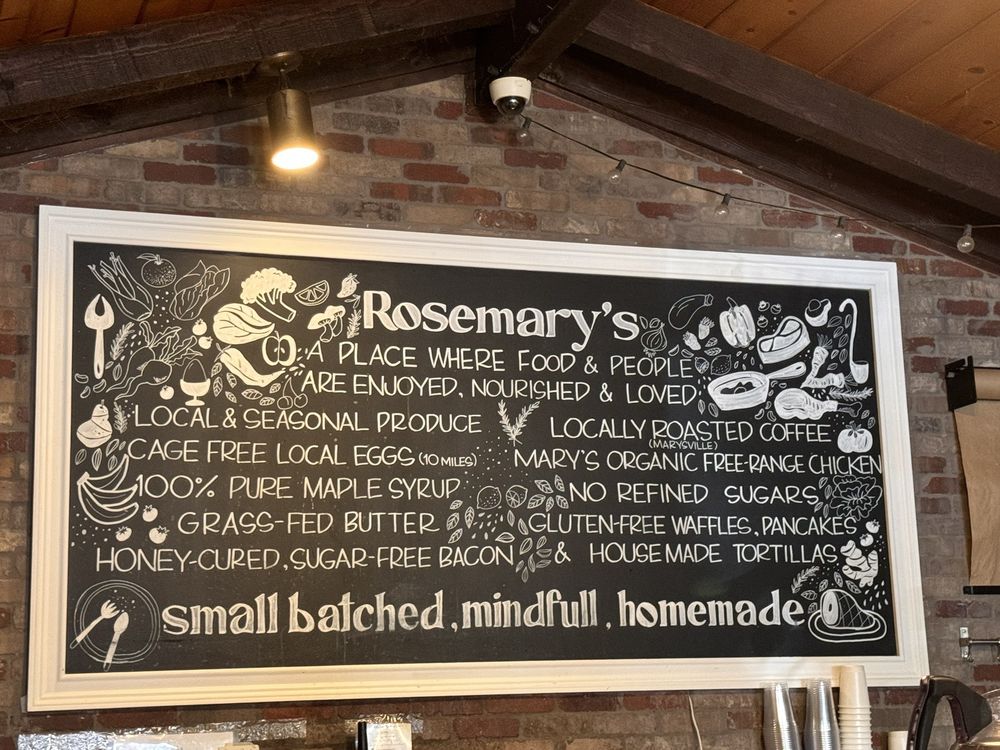 Rosemary's
A PLACE WHERE FOOD & PEOPLE
ARE ENJOYED, NOURISHED & LOVED
LOCAL & SEASONAL PRODUCE
CAGE FREE LOCAL EGGS (10 MILES)
100% PURE MAPLE SYRUP
GRASS-FED BUTTER
HONEY-CURED, SUGAR-FREE BACON
LOCALLY ROASTED COFFEE
(MARYSVILLE)
MARY'S ORGANIC FREE-RANGE CHICKEN
NO REFINED SUGARS
GLUTEN-FREE WAFFLES, PANCAKES
& HOUSEMADE TORTILLAS
small batched, mindfull, homemade